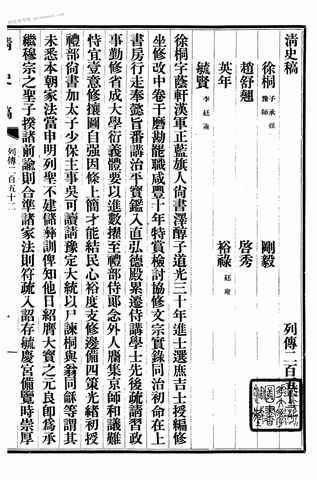 清史稿
列傳二百五十二
徐桐 子承煜 豫師 剛毅
趙舒翹 啓秀
英年 裕祿 廷雍
毓賢 李廷簫
徐桐字蔭軒漢軍正藍旗人尚書澤醇子道光三十年進士選庶吉士授編修
坐修改中卷干磨勘罷職咸豐十年特賞檢討協修文宗實錄同治初命在上
書房行走奉懿旨番講治平寶鑑入直弘德殿累遷侍講學士先後疏請習政
事勤修省成大學衍義體要以進數擢至禮部侍郎念外人麕集京師和議難
恃宜壹意修攘圖自强因條上簡才能結民心裕度支修邊備四策光緒初授
禮部尚書加太子少保主事吳可讀請豫定大統以尸諫桐與翁同龢等謂其
未悉本朝家法當申明列聖不建儲彝訓俾知他日紹膺大寶之元良卽爲承
繼穆宗之聖子揆諸前諭則合準諸家法則符疏入詔存毓慶宮備覽時崇厚
清史稿
列傳二百五十二
一